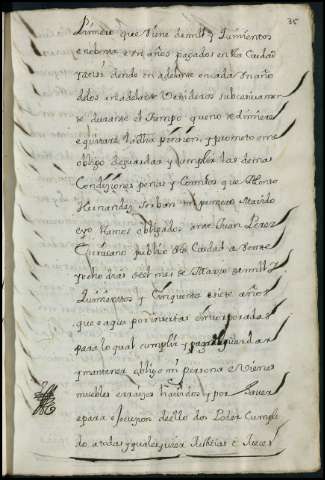 35
Primero que viene de mill y quinientos
e nobenta e un años pagados en la Ciudad
y ansi dende en adelante en cada un año
de los en adelante venideros subcesivamen
te durante el tiempo que no redimiere
e quitare la dha pension y prometo e me
obligo de guardar y cumplir las demas
Condiziones penas y Comisos que Alonso
Hernandez su primero marido
eyo fuimos obligados ante Juan Perez
escrivano publico de la Ciudad a veinte
y ocho dias del mes de Março de mill e
Quinientos y Cinquenta e siete años
que e aqui por insertas e incorporadas
para lo qual cumplir y pagar e guardar
y mantener obligo mi persona e vienes
muebles e rrayzes havidos y por haver
e para e Jecucion dello dos Poder Cumpli
do a todas y qualesquier Justicias e Jueces